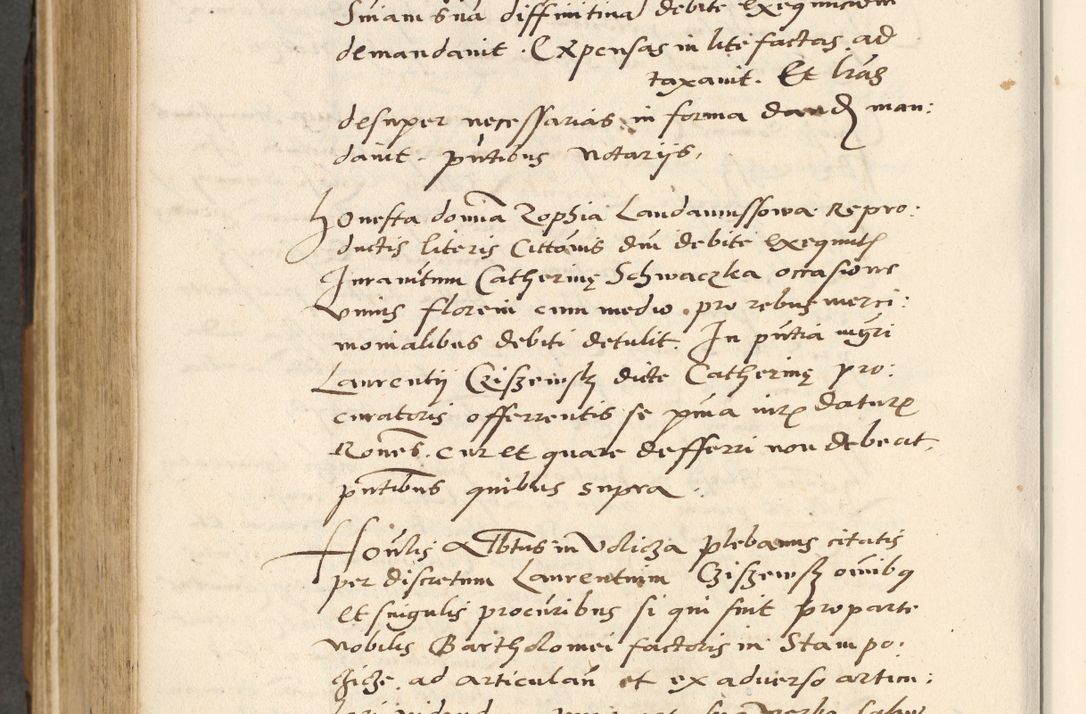 Sniam sua diffinitiua debite exequutioni
demandauit. Expensas in lite factas ad
taxauit. Et lras
desuper necessarias in forma dand man:
dauit. pntibus Notarijs.
Honesta domina Zophia Landaunssowa Repro:
ductis literis Cittonis dni debite exequut
Iurauitum Catherine Schwaczka occasione
vnius floreni cum medio pro rebus merci:
monialibus debiti detulit. In pntia mgri
Laurentij Cziszewsky dicte Catherine pro:
curatoris offerrentis se prima iur datur
Rones. cur et quare defferri non debeat,
pntibus quibus supra.
Honlis Albtus in Volicza plebanus citatis
per discretum Laurentium Cziszewsk omibq
et singulis procuribus si qui sint pro parte
Nobilis Bartholomei factoris in Stampo:
ad articulan et ex aduerso articu: